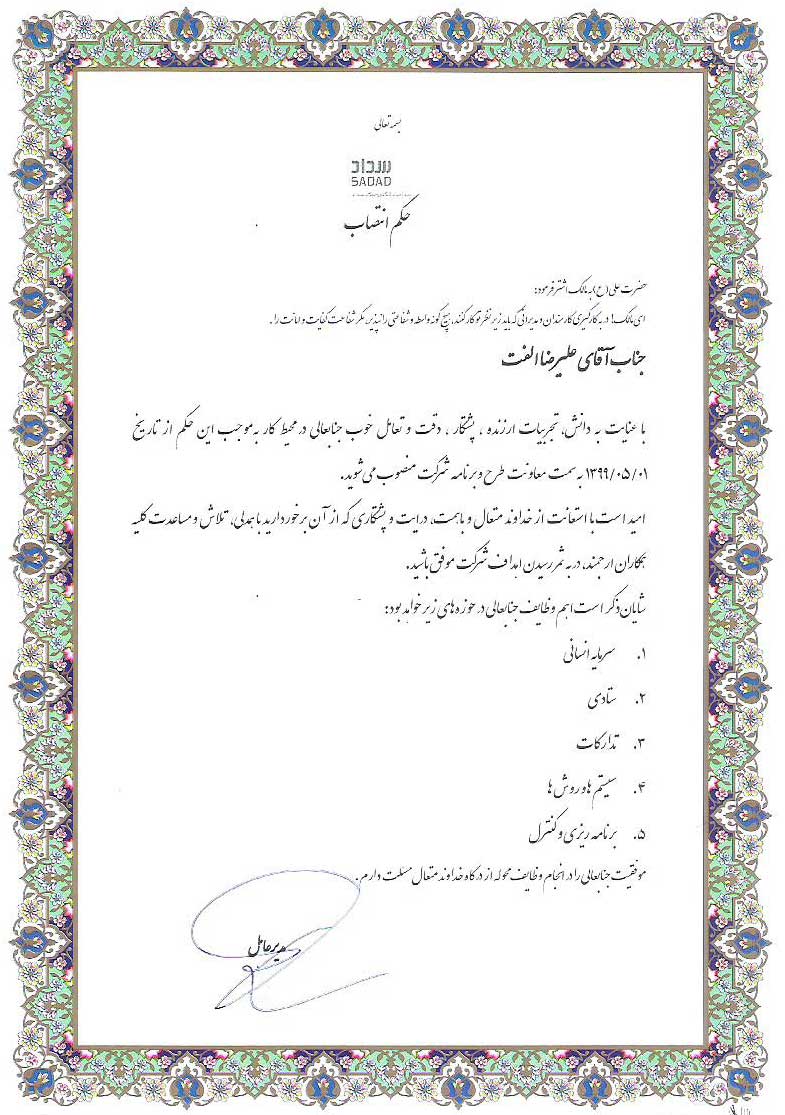 بسمه تعالی
سداد
SADAD
حکم انتصاب
حضرت علی (ع) به مالک اشتر فرمود:
ای مالک! در به کارگیری کارمندان و مدیرانی که باید زیر نظر تو کار کنند، هیچ گونه واسطه و شفاعتی را نپذیر مگر شفاعت کفایت و امانت را.
جناب آقای علیرضا الفت
با عنایت به دانش، تجربیات ارزنده ، پشتکار ، دقت و تعامل خوب جنابعالی در محیط کار به موجب این حکم از تاریخ
۱۳۹۹/۰۵/۰۱ به سمت معاونت طرح و برنامه شرکت منصوب می شوید.
امید است با استعانت از خداوند متعال و با همت، درایت و پشتکاری که از آن برخوردارید با همدلی، تلاش و مساعدت کلیه
همکاران ارجمند، در به ثمر رسیدن اهداف شرکت موفق باشید.
شایان ذکر است اهم وظایف جنابعالی در حوزه های زیر خواهد بود:
۱. سرمایه انسانی
۲. ستادی
۳. تدارکات
۴. سیستم ها و روش ها
۵. برنامه ریزی و کنترل
موفقیت جنابعالی را در انجام وظایف محوله از درگاه خداوند متعال مسئلت دارم.
مدیرعامل